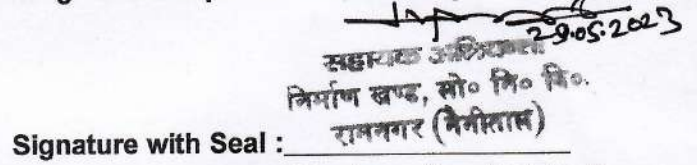 29.05.2023
सहायक अभियन्ता
निर्माण खण्ड, लो० नि० वि०.
रामनगर (नैनीताल)
Signature with Seal :